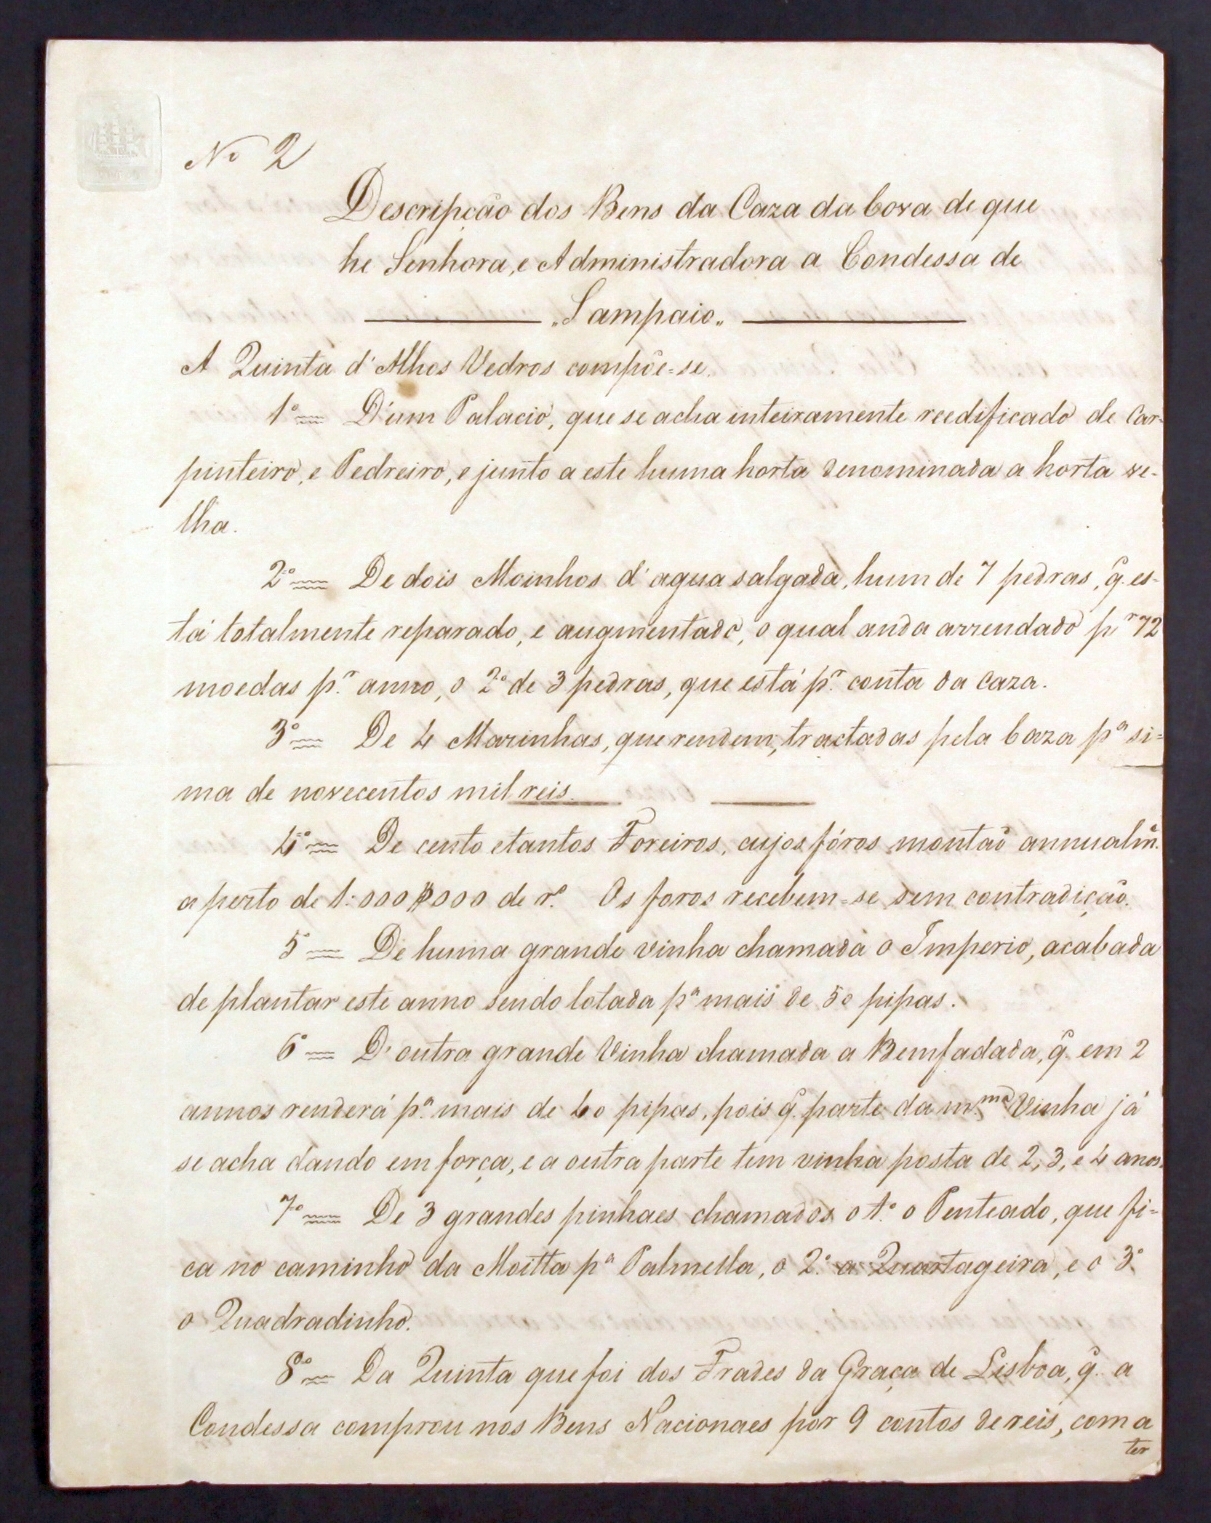 Nº 2
Descripção dos Bens da Caza da Cova de que
he Senhora, e Administradora a Condessa de
"Sampaio"
A Quinta d'Alhos Vedros compõe=se.
1º D'um Palacio, que se acha inteiramente reedificado de Car-
pinteiro, e Pedreiro, e junto a este huma horta denominada a horta ve-
lha.
2º De dois Moinhos d'agua salgada, hum de 7 pedras, q̃. es-
tá totalmente reparado, e augmentado, o qual anda arrendado pr 72
moedas pr. anno, o 2º de 3 pedras, que está pr. conta da caza.
3º De 4 Marinhas, que rendem, tractadas pela Caza pª si-
ma de novecentos mil reis.
4º De cento e tantos Foreiros, cujos fóros montão annualm̃.
a perto de 1:000$000 de rs. Os foros recebem=se sem contradicção.
5º De huma grande vinha chamada o Imperio, acabada
de plantar este anno sendo lotada pª mais de 50 pipas.
6º D'outra grande Vinha chamada a Bemfadada, q̃. em 2
annos renderá pª. mais de 40 pipas, pois q̃. parte da m.ma Vinha já
se acha dando em força, e a outra parte tem vinha posta de 2, 3, e 4 anos.
7º De 3 grandes pinhaes chamados o 1.º o Penteado, que fi=
ca no caminho da Moitta pª Palmella, o 2.º a Quartageira, e o 3º
o Quadradinho.
8º Da Quinta que foi dos Frades da Graça de Lisboa, q̃. a
Condessa comprou nos Bens Nacionaes por 9 contos de reis, com a
ter